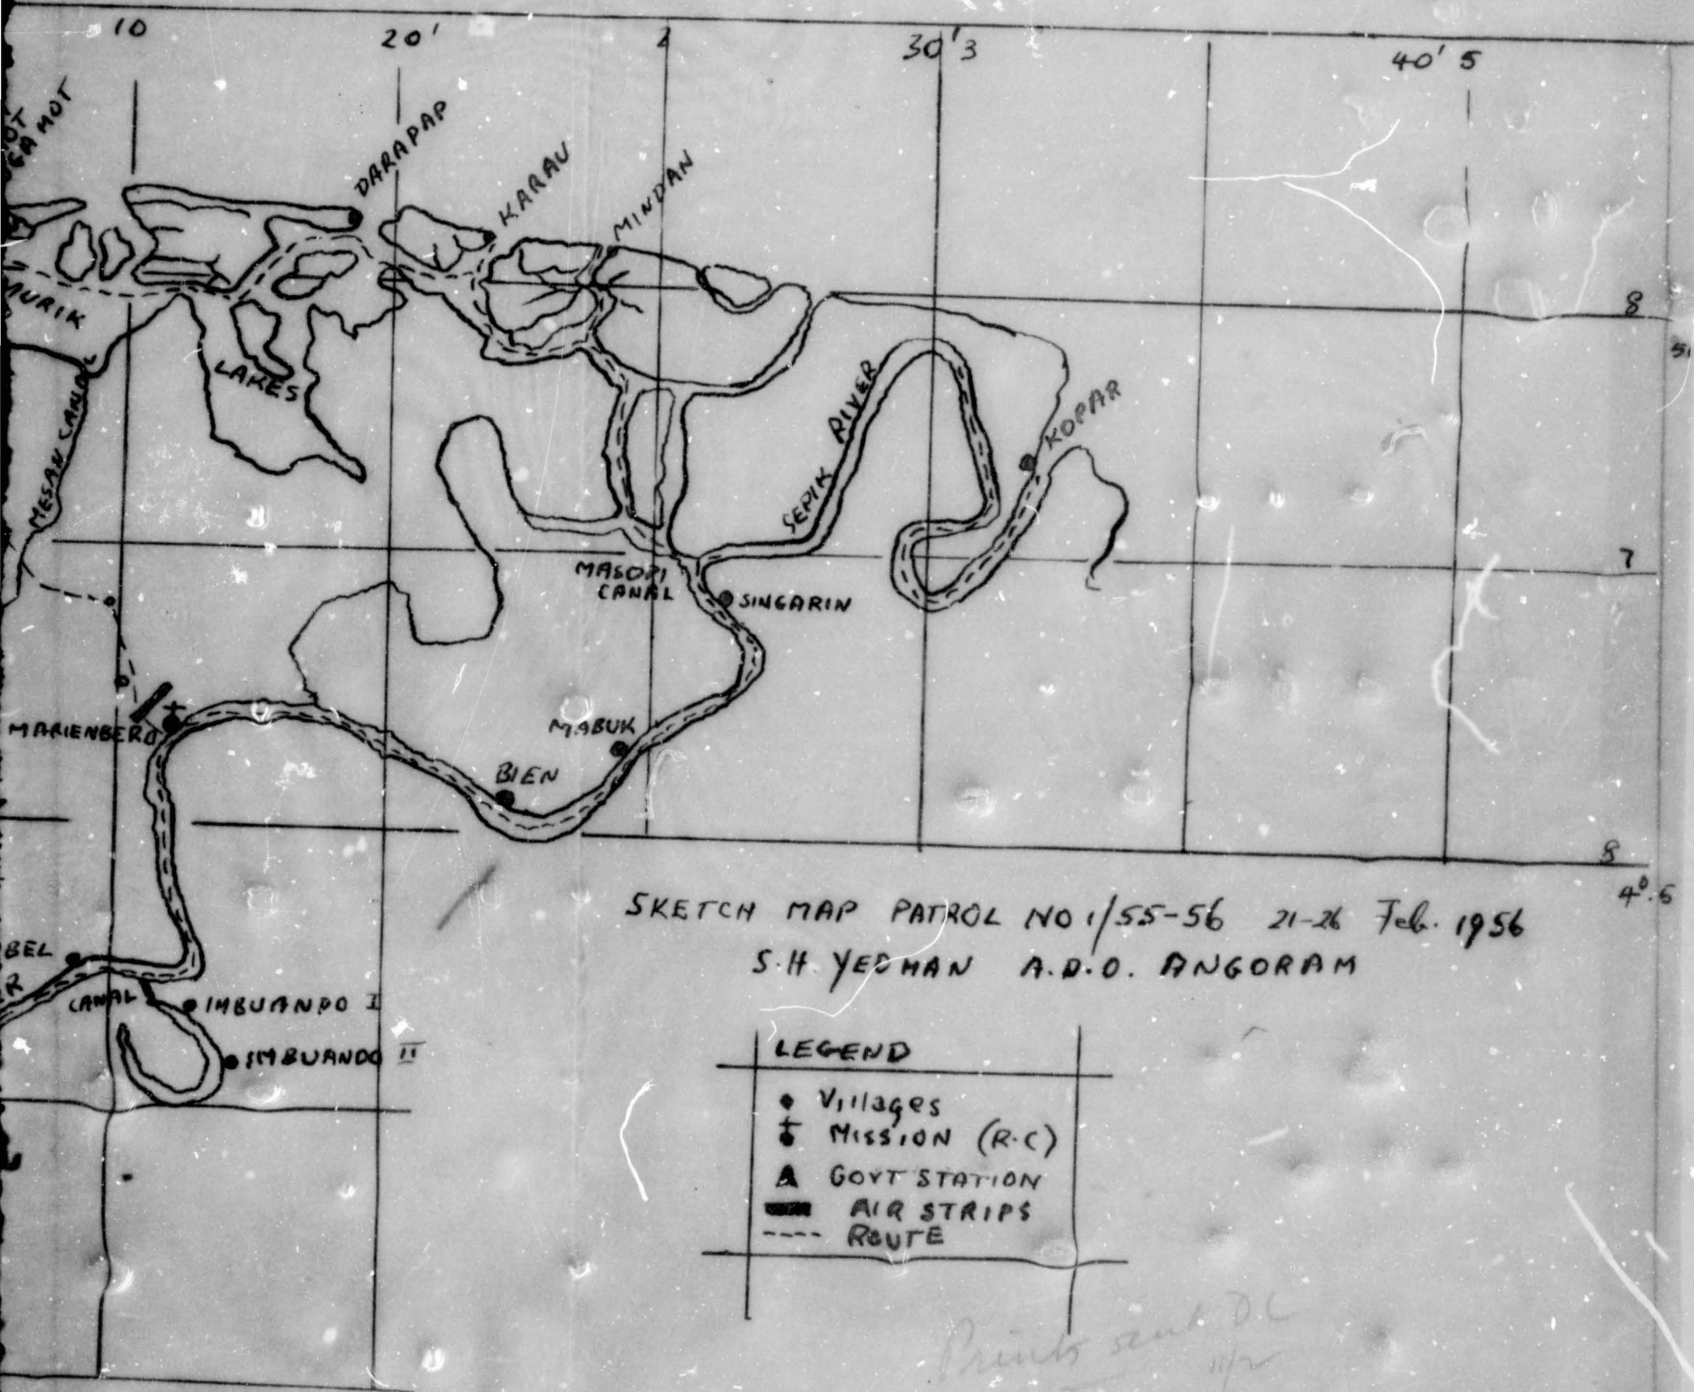 10 20' 2 30' 3 40' 5
GAMOT
DARAPAP
KARAU
MINDAN
8
LAKES
MESAN CANAL
SEPIK RIVER
KOPAR
7
MASOPI
CANAL
SINGARIN
MARIENBERG
MABUK
BIEN
8
4°.5
SKETCH MAP PATROL NO 1/55-56 21-26 Feb. 1956
S.H. YEOMAN A.D.O. ANGORAM
BEL
R
CANAL
IMBUANDO I
IMBUANDO II
LEGEND
Villages
MISSION (R.C)
GOVT STATION
AIR STRIPS
ROUTE
Prints sent DC